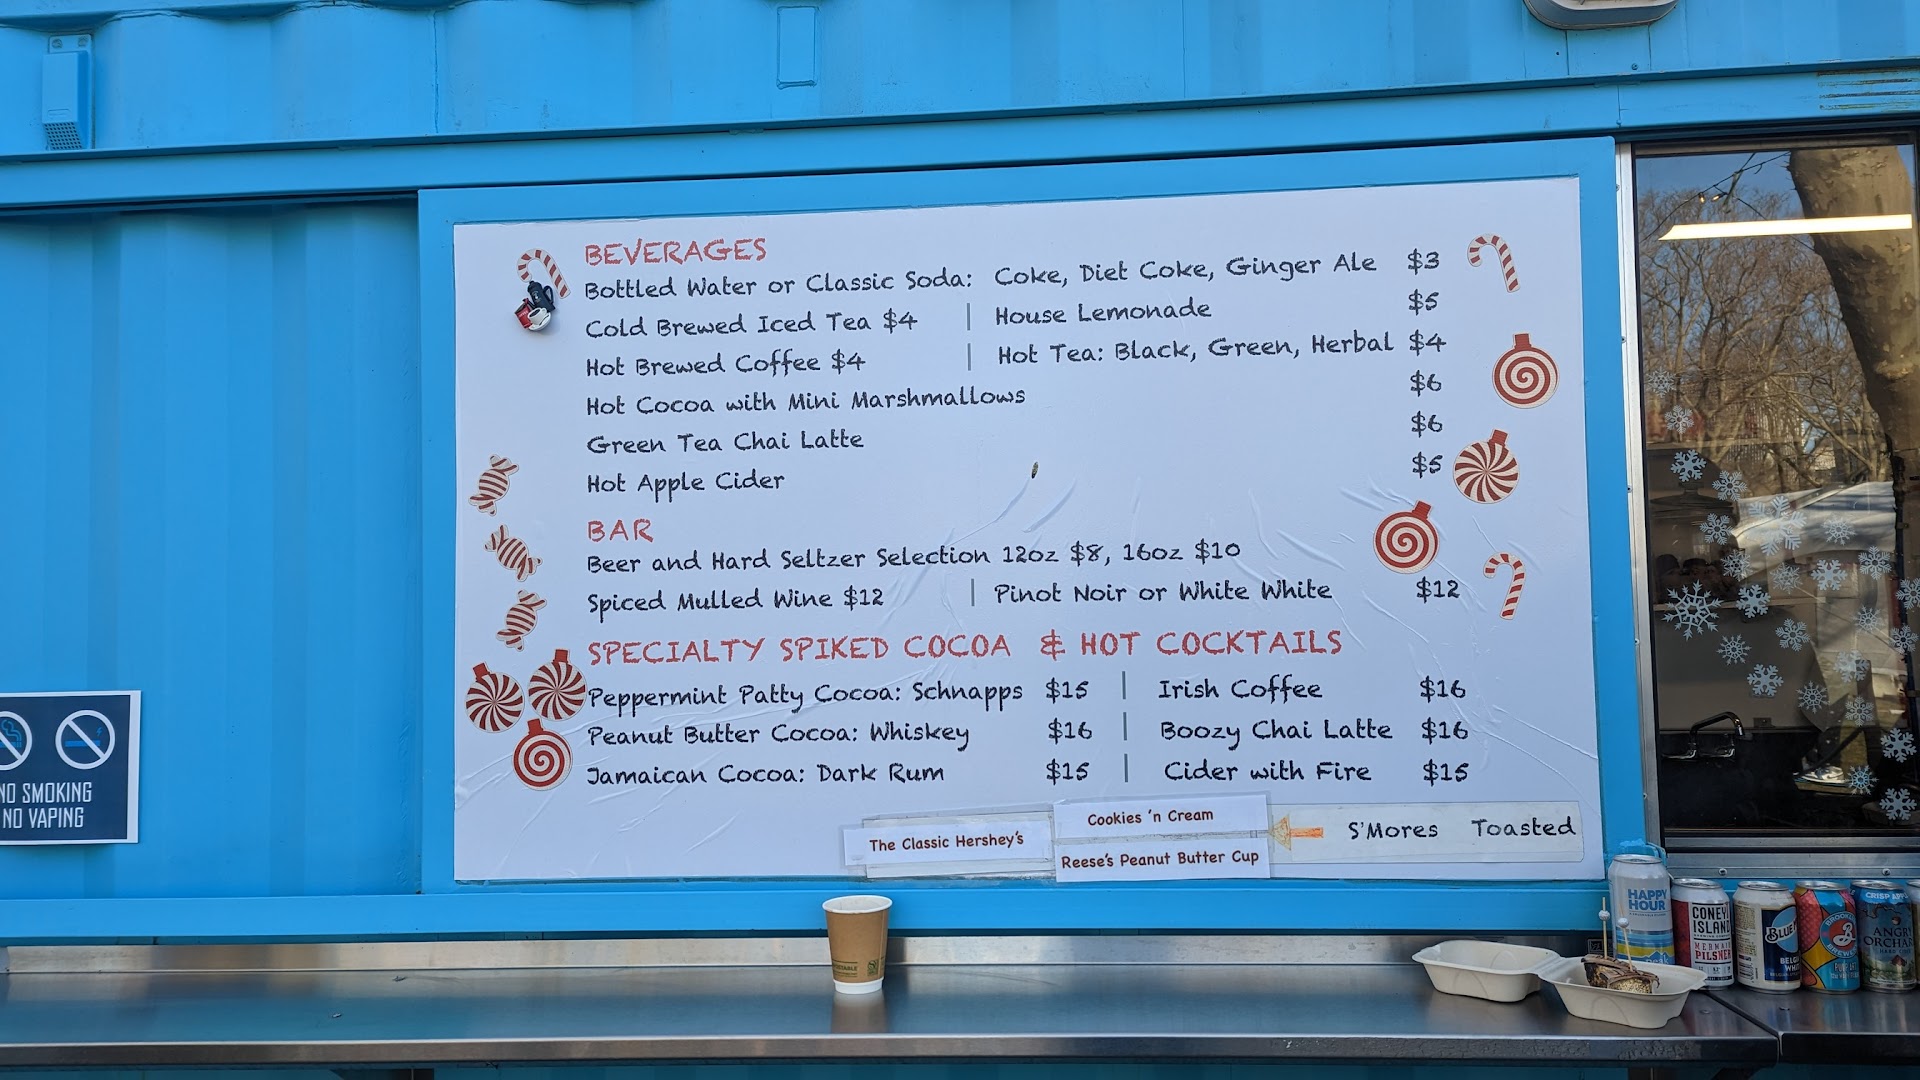 BEVERAGES
Bottled Water or Classic Soda: Coke, Diet Coke, Ginger Ale $3
Cold Brewed Iced Tea $4 | House Lemonade $5
Hot Brewed Coffee $4 | Hot Tea: Black, Green, Herbal $4
Hot Cocoa with Mini Marshmallows $6
Green Tea Chai Latte $6
Hot Apple Cider $5
BAR
Beer and Hard Seltzer Selection 12oz $8, 16oz $10
Spiced Mulled Wine $12 | Pinot Noir or White White $12
SPECIALTY SPIKED COCOA & HOT COCKTAILS
Peppermint Patty Cocoa: Schnapps $15 | Irish Coffee $16
Peanut Butter Cocoa: Whiskey $16 | Boozy Chai Latte $16
Jamaican Cocoa: Dark Rum $15 | Cider with Fire $15
The Classic Hershey's
Cookies 'n Cream
Reese's Peanut Butter Cup
S'Mores Toasted
NO SMOKING
NO VAPING
HAPPY
HOUR
CONEY
ISLAND
MERMAID
PILSNER
BLUE
BELGIAN
CRISP
ANGRY
ORCHARD